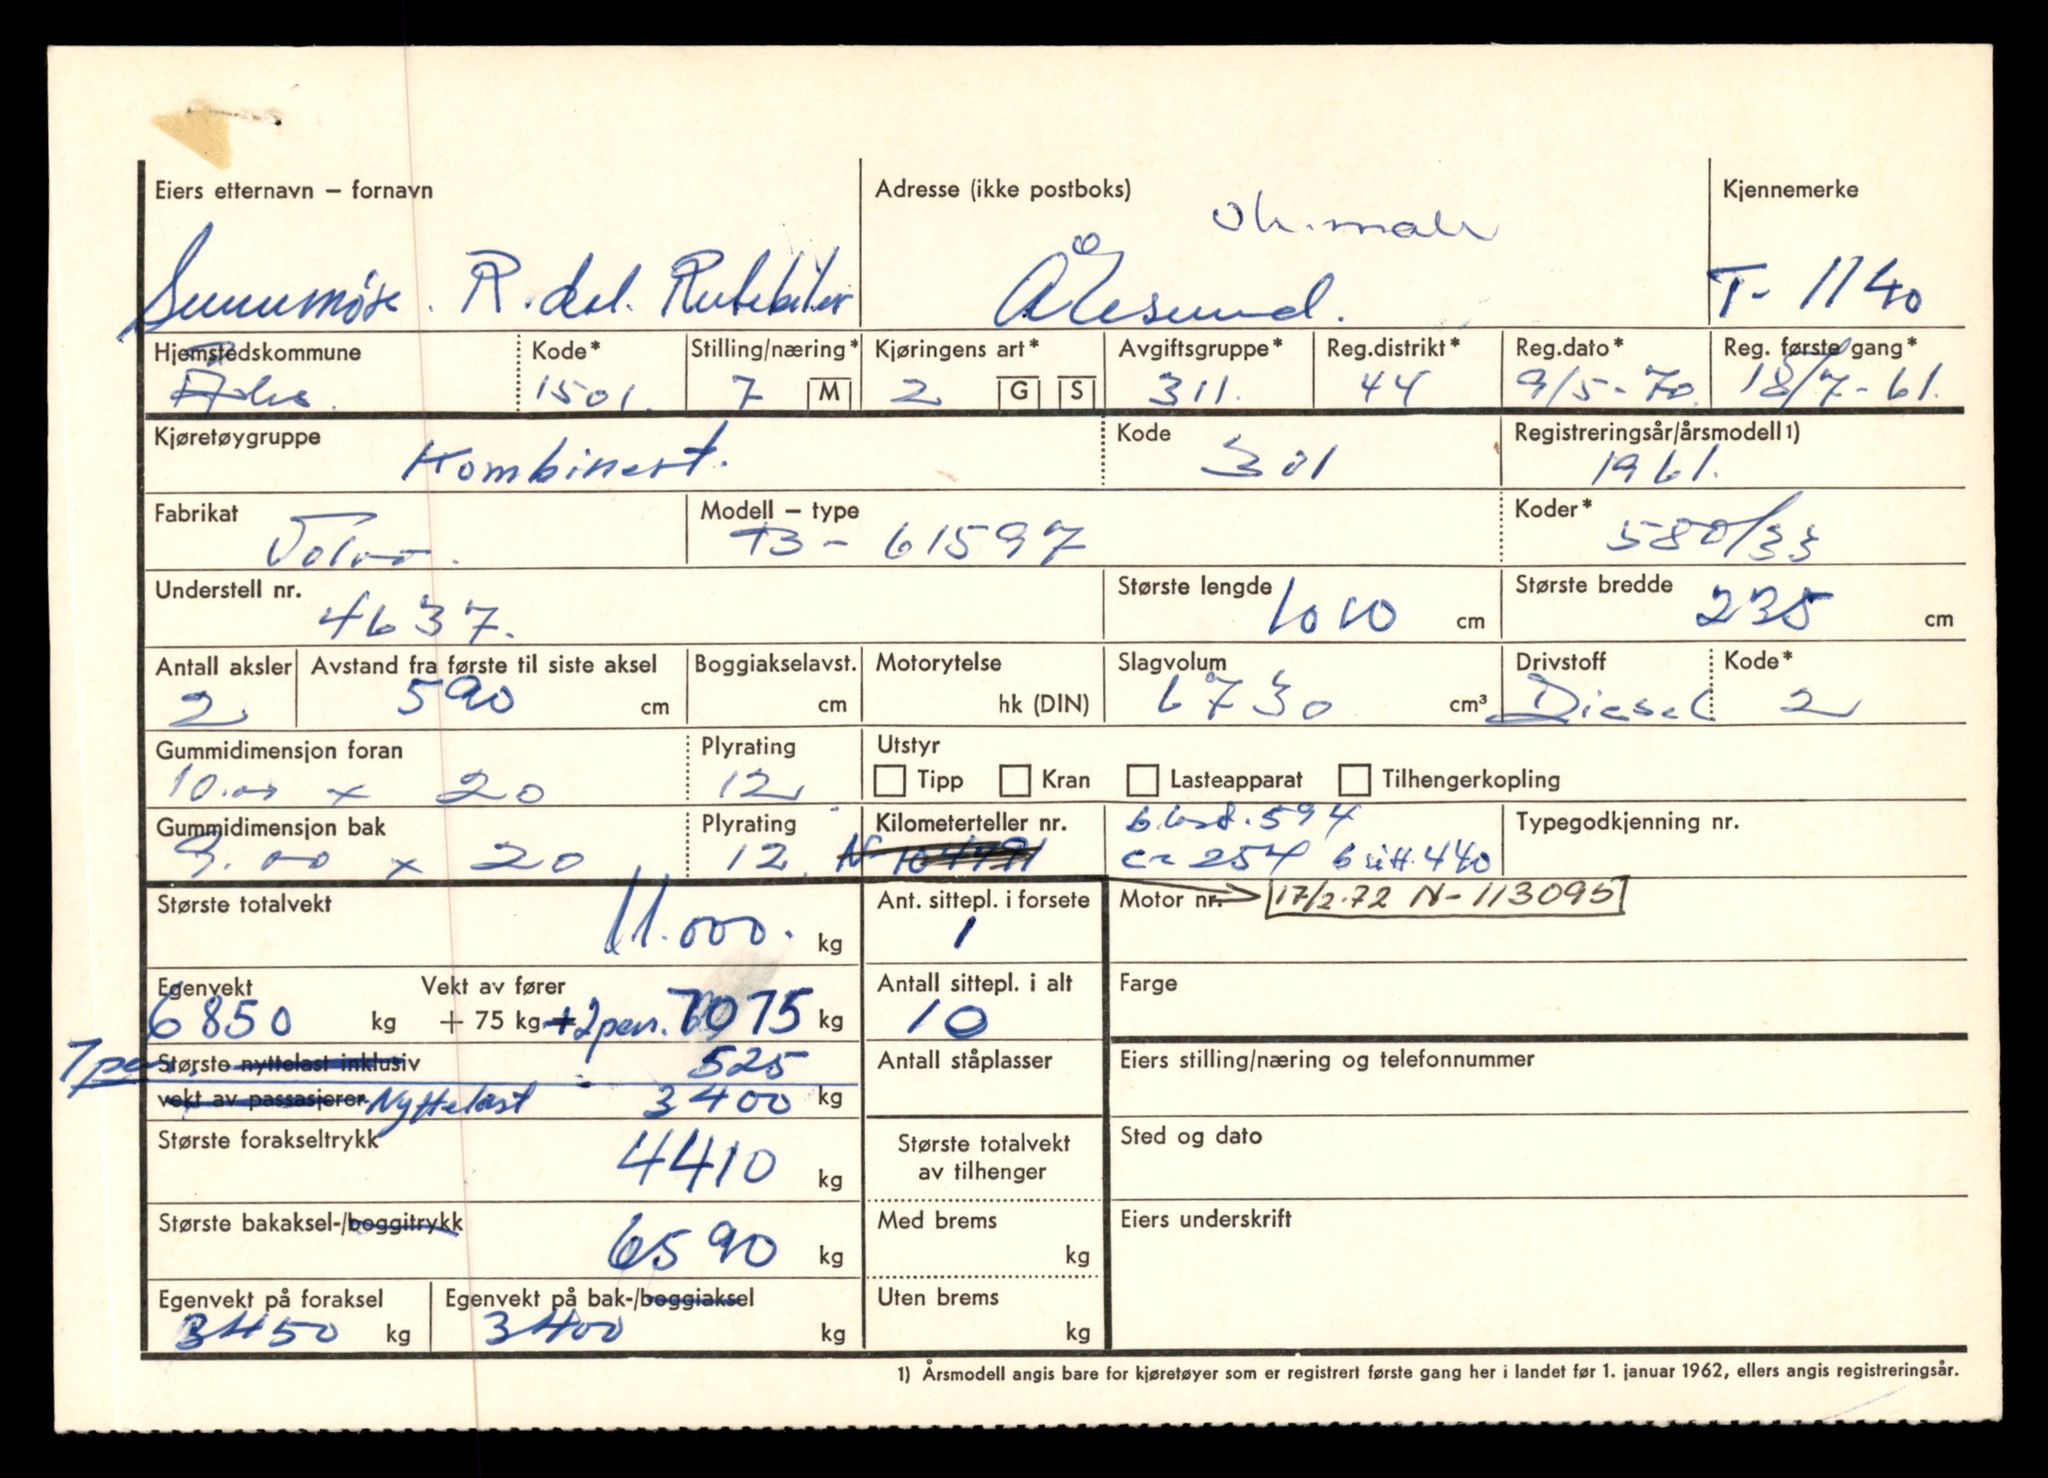 Eiers etternavn – fornavn
Adresse (ikke postboks)
Kjennemerke
Sunnmøre. R. del. Rutebiler
Ålesund.
T- 1140
Hjemstedskommune
Kode*
Stilling/næring*
Kjøringens art*
Avgiftsgruppe*
Reg.distrikt*
Reg.dato*
Reg. første gang*
1501.
7
M
2
G
S
311.
44
9/5-70.
18/7-61.
Kjøretøygruppe
Kombinert.
Kode
301
Registreringsår/årsmodell1)
1961.
Fabrikat
Volvo.
Modell – type
B- 61597
Koder*
580/33
Understell nr.
4637.
Største lengde
1010 cm
Største bredde
235 cm
Antall aksler
2
Avstand fra første til siste aksel
590 cm
Boggiakselavst.
cm
Motorytelse
hk (DIN)
Slagvolum
6730 cm³
Drivstoff
Diesel
Kode*
2
Gummidimensjon foran
10.00 x 20
Plyrating
12
Utstyr
Tipp
Kran
Lasteapparat
Tilhengerkopling
Gummidimensjon bak
9.00 x 20
Plyrating
12.
Kilometerteller nr.
N-104791
594
254 440
Typegodkjenning nr.
Største totalvekt
11.000. kg
Ant. sittepl. i forsete
1
Motor nr.
17/2.72 N-113095
Egenvekt
6850 kg
Vekt av fører
+ 75 kg + 2 pers. 7075 kg
Antall sittepl. i alt
10
Farge
7 pers.
Største nyttelast inklusiv
525
vekt av passasjerer Nyttelast 3400 kg
Antall ståplasser
Eiers stilling/næring og telefonnummer
Største forakseltrykk
4410 kg
Største totalvekt
av tilhenger
Sted og dato
Største bakaksel-/boggitrykk
6590 kg
Med brems
kg
Eiers underskrift
Egenvekt på foraksel
3450 kg
Egenvekt på bak-/boggiaksel
3400 kg
Uten brems
kg
1) Årsmodell angis bare for kjøretøyer som er registrert første gang her i landet før 1. januar 1962, ellers angis registreringsår.